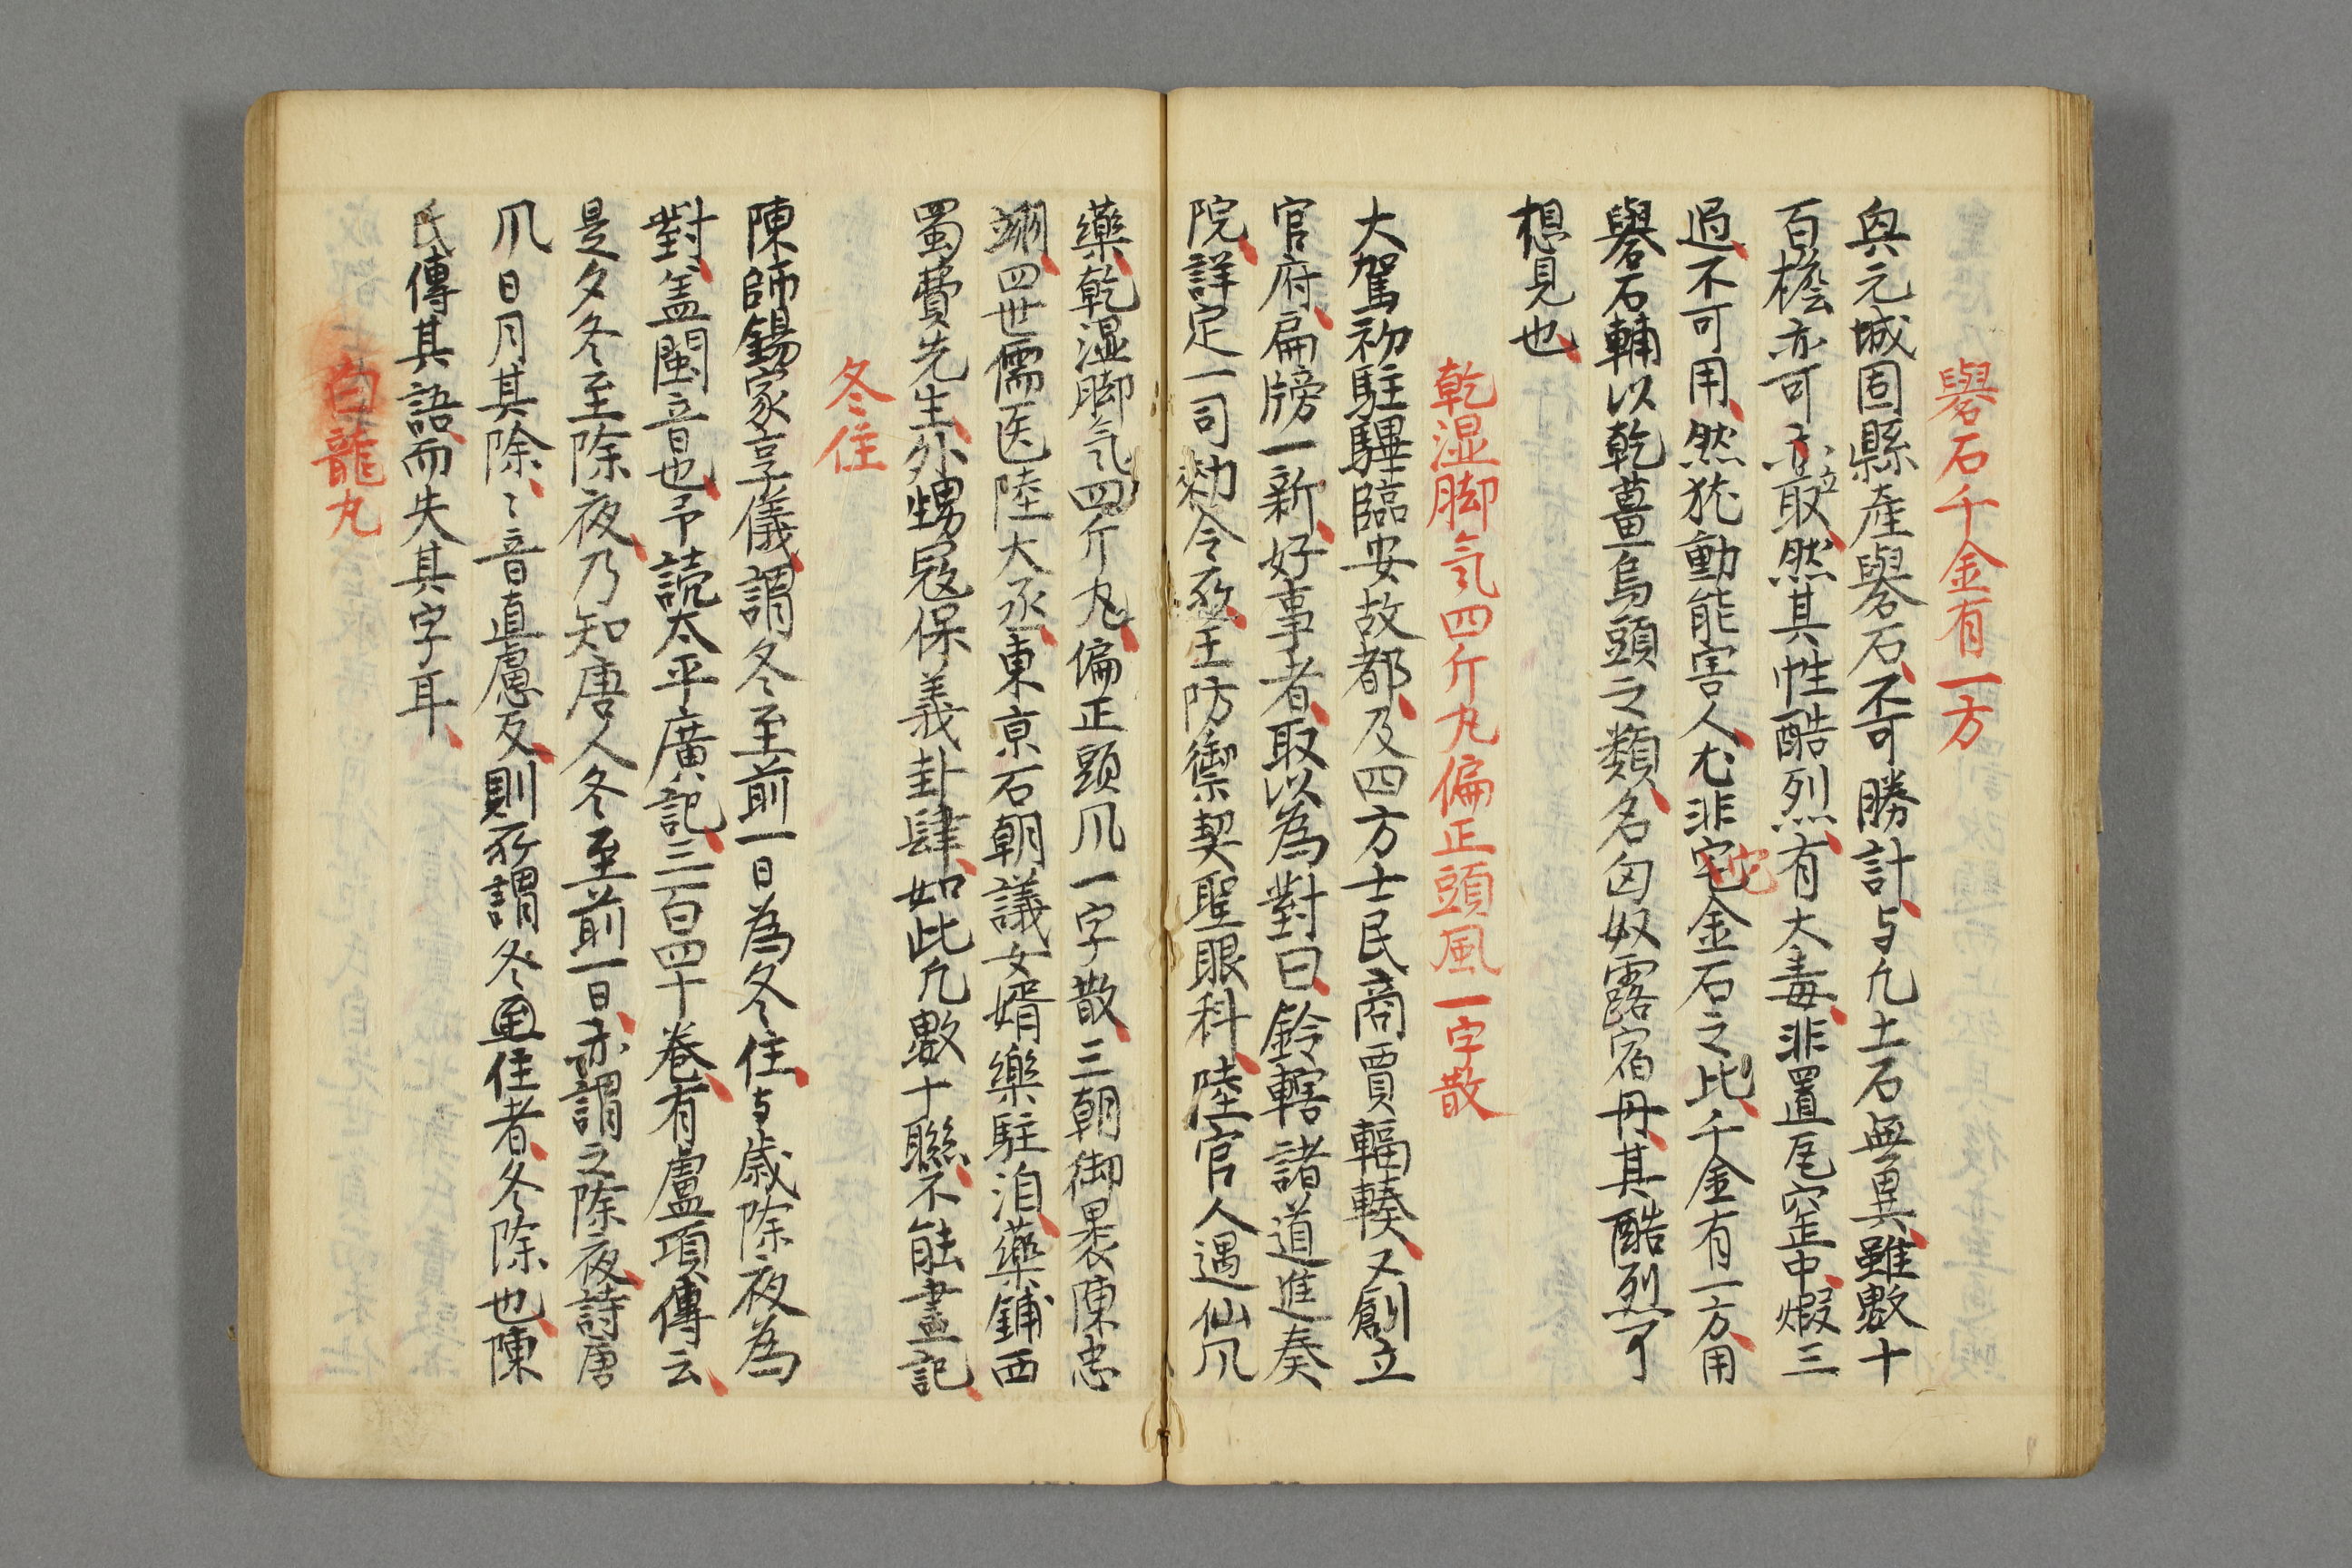 礜石千金有一方
與元城固縣產礜石不可勝計与九土石無異雖數十
百檐亦可立取然其性酷烈有大毒非置瓦窑中煆三
過不可用然犹動能害人尤非它金石之比千金有一方用
礜石輔以乾薑烏頭之類名匈奴露宿丹其酷烈可
想見也
乾湿脚氣四斤丸偏正頭風一字散
大駕初駐驆臨安故都及四方士民商賈輻輳又創立
官府扁牓一新好事者取以為對曰鈴轄諸道進奏
院詳定一司勑令所王防禦契聖眼科陸官人遇仙风
藥乾湿脚气四斤丸偏正頭风一字散三朝御裹陳忠
翊四世儒医陸大丞東京石朝議女婿樂駐泊藥鋪西
蜀費先生外甥寇保義卦肆如此凡數十聯不能盡記
冬住
陳師錫家享儀謂冬至前一日為冬住与歲除夜為
對盖閩音也予読太平廣記三百四十卷有盧項傳云
是夕冬至除夜乃知唐人冬至前一日亦謂之除夜詩唐
风日月其除〻音直慮反則所謂冬住者冬除也陳
氏傳其語而失其字耳
白龍丸